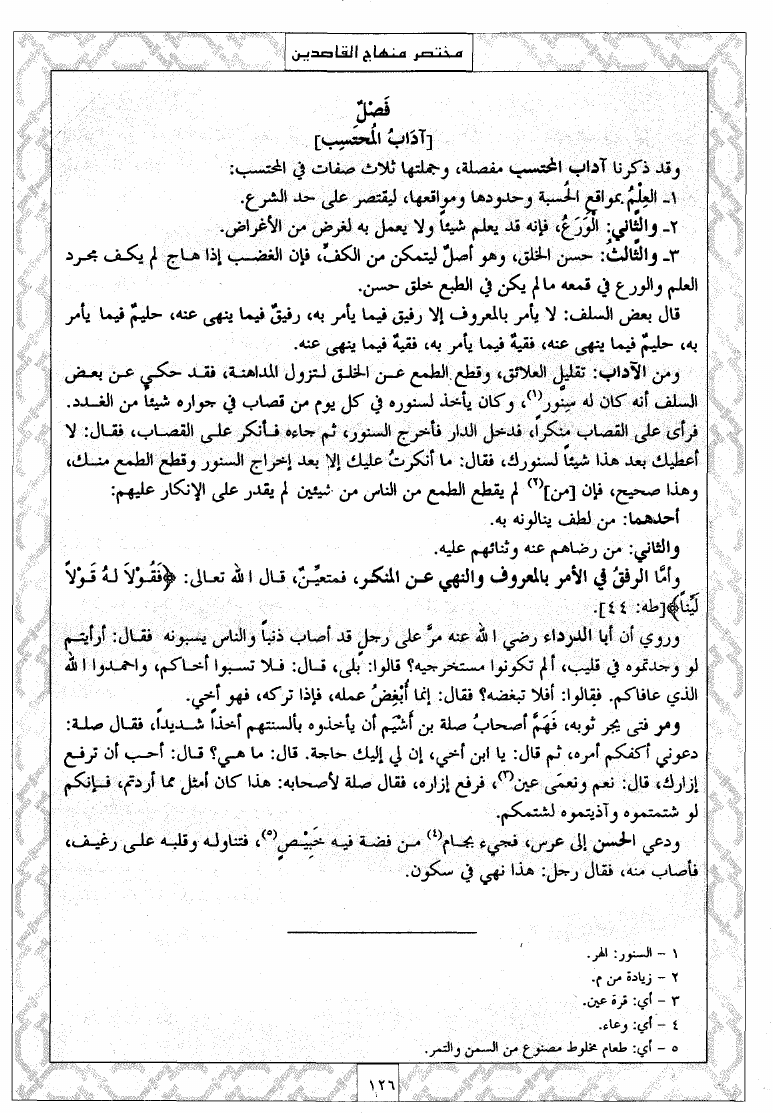 مختصر منهاج القاصدين
فَصْلٌ
[آدَابُ الُمحتَسِب]
وقد ذكرنا آداب المحتسب مفصلة، وجملتها ثلاث صفات في المحتسب:
١ـ العِلْمُ بمواقع الحُسبة وحدودها ومواقعها، ليقتصر على حد الشرع.
٢ـ والثَّاني: الْوَرَعُ، فإنه قد يعلم شيئاً ولا يعمل به لغرض من الأغراض.
٣ـ والثَّالثُ: حسن الخلق، وهو أصلٌ ليتمكن من الكفِّ، فإن الغضب إذا هاج لم يكف مجرد
العلم والورع في قمعه مالم يكن في الطبع خلق حسن.
قال بعض السلف: لا يأمر بالمعروف إلا رفيق فيما يأمر به، رفيقٌ فيما ينهى عنه، حليمٌ فيما يأمر
به، حليمٌ فيما ينهى عنه، فقيهٌ فيما يأمر به، فقيهٌ فيما ينهى عنه.
ومن الآداب: تقليل العلائق، وقطع الطمع عن الخلق لتزول المداهنة، فقد حكي عن بعض
السلف أنه كان له سِنَّور(١)، وكان يأخذ لسنوره في كل يوم من قصاب في جواره شيئاً من الغدد.
فرأى على القصاب منكراً، فدخل الدار فأخرج السنور، ثم جاءه فأنكر على القصاب، فقال: لا
أعطيك بعد هذا شيئاً لسنورك، فقال: ما أنكرتُ عليك إلا بعد إخراج السنور وقطع الطمع منك،
وهذا صحيح، فإن [من](٢) لم يقطع الطمع من الناس من شيئين لم يقدر على الإنكار عليهم:
أحدهما: من لطف ينالونه به.
والثاني: من رضاهم عنه وثنائهم عليه.
وأمَّا الرفقُ في الأمر بالمعروف والنهي عن المنكر، فمتعيِّنٌ، قال الله تعالى: ﴿فَقُوْلاَ لَهُ قَوْلاً
لَيِّناً﴾[طه: ٤٤].
وروي أن أبا الدرداء رضي الله عنه مرَّ على رجل قد أصاب ذنباً والناس يسبونه فقال: أرأيتم
لو وجدتموه في قليب، ألم تكونوا مستخرجيه؟ قالوا: بلى، قال: فلا تسبوا أخاكم، واحمدوا الله
الذي عافاكم. فقالوا: أفلا تبغضه؟ فقال: إنما أُبْغِضُ عمله، فإذا تركه، فهو أخي.
ومر فتى يجر ثوبه، فَهَمَّ أصحابُ صلة بن أَشْيَم أن يأخذوه بألسنتهم أخذاً شديداً، فقال صلة:
دعوني أكفكم أمره، ثم قال: يا ابن أخي، إن لي إليك حاجة. قال: ما هي؟ قال: أحب أن ترفع
إزارك، قال: نعم ونعمَى عين(٣)، فرفع إزاره، فقال صلة لأصحابه: هذا كان أمثل مما أردتم، فإنكم
لو شتمتموه وآذيتموه لشتمكم.
ودعي الحسن إلى عرس، فجيء بجام(٤) من فضة فيه خَبِيْصٍ(٥)، فتناوله وقلبه على رغيف،
فأصاب منه، فقال رجل: هذا نهي في سكون.
١ - السنور: الهر.
٢ - زيادة من م.
٣ - أي: قرة عين.
٤ - أي: وعاء.
٥ - أي: طعام مخلوط مصنوع من السمن والتمر.
١٢٦